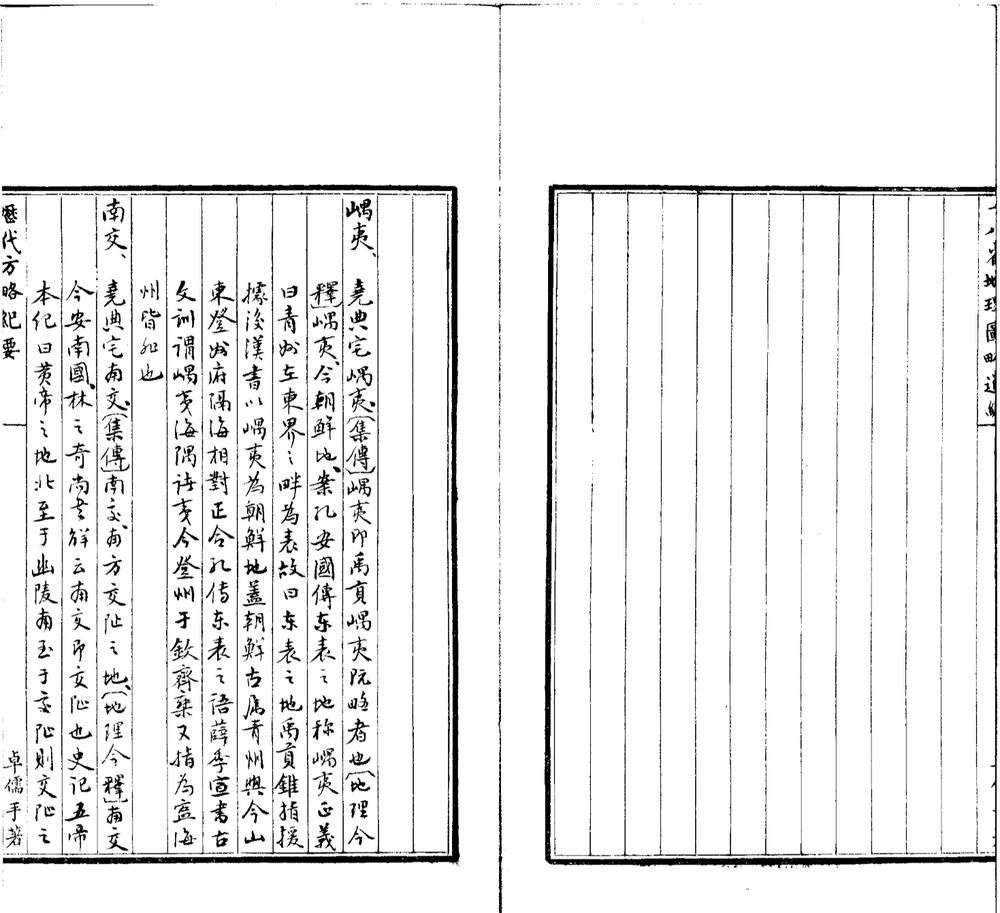 省地理圖略遺編
嵎夷、堯典宅嵎夷、〔集傳〕嵎夷即禹貢嵎夷既略者也〔地理今
釋〕嵎夷、今朝鮮地、案孔安國傳东表之地称嵎夷正義
曰青州在東界之畔為表故曰东表之地禹貢錐指援
據後漢書以嵎夷為朝鮮地蓋朝鮮古属青州與今山
東登州府隔海相對正合孔传东表之語薛季宣書古
文訓謂嵎夷海隅諸夷今登州于欽齊乘又指為寧海
州皆非也
南交、堯典宅南交、〔集傳〕南交、南方交阯之地、〔地理今釋〕南交
今安南國、林之奇尚书解云南交即交阯也史记五帝
本纪曰黄帝之地北至于幽陵南至于交阯則交阯之
歷代方略紀要 一 卓儒手著